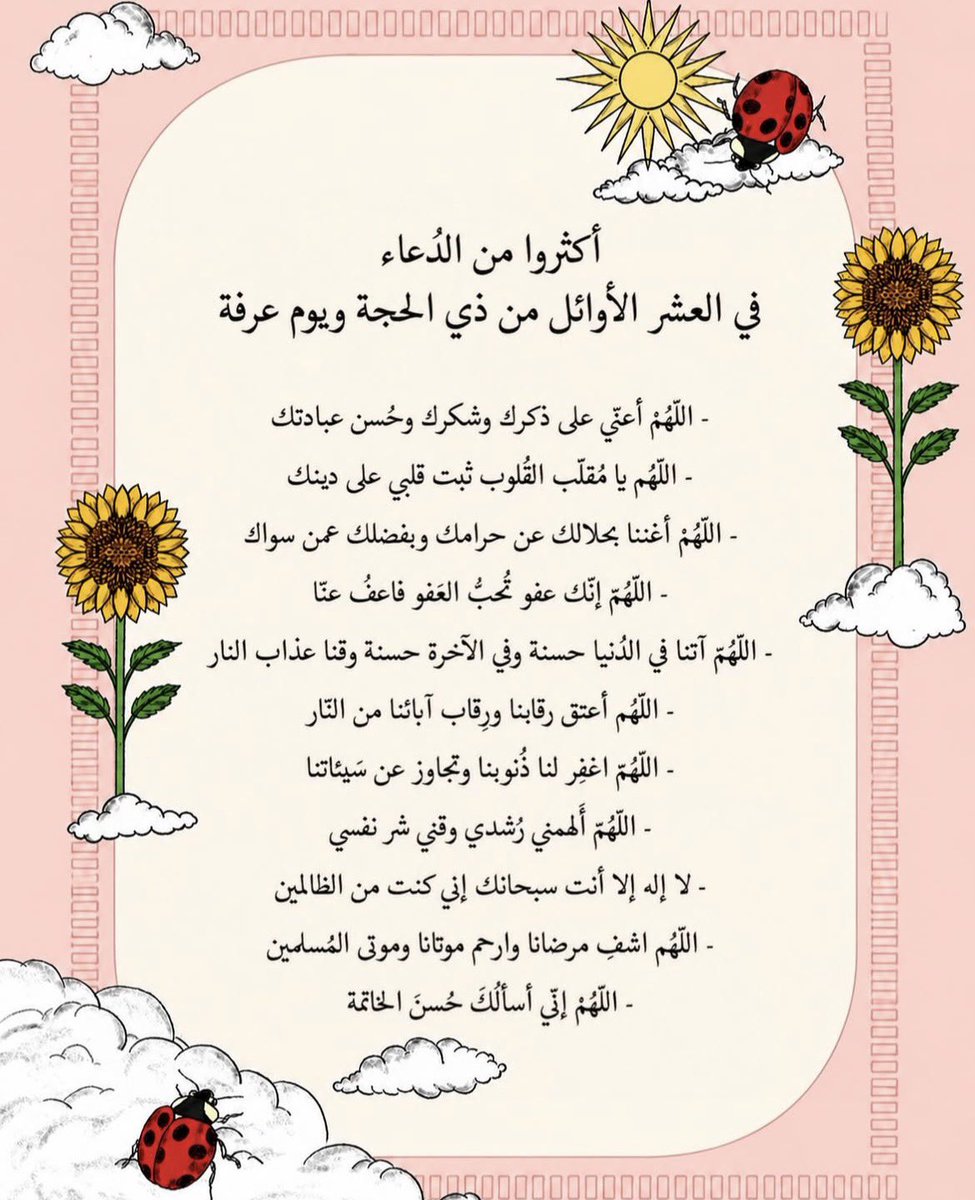 أكثروا من الدُعاء
في العشر الأوائل من ذي الحجة ويوم عرفة
- اللّهُمْ أعنّي على ذكرك وشكرك وحُسن عبادتك
- اللّهُم يا مُقلّب القُلوب ثبت قلبي على دينك
- اللّهُمْ أغننا بحلالك عن حرامك وبفضلك عمن سواك
- اللّهُمّ إنّك عفو تُحبُّ العَفو فاعفُ عنّا
- اللّهُمّ آتنا في الدُنيا حسنة وفي الآخرة حسنة وقنا عذاب النار
- اللّهُم أعتق رقابنا ورِقاب آبائنا من النّار
- اللّهُمّ اغفِر لنا ذُنوبنا وتجاوز عن سَيئاتنا
- اللّهُمّ أَلهمني رُشدي وقني شر نفسي
- لا إله إلا أنت سبحانك إني كنت من الظالمين
- اللّهُم اشفِ مرضانا وارحم موتانا وموتى المُسلمين
- اللّهُمْ إنّي أسألُكَ حُسنَ الخاتمة